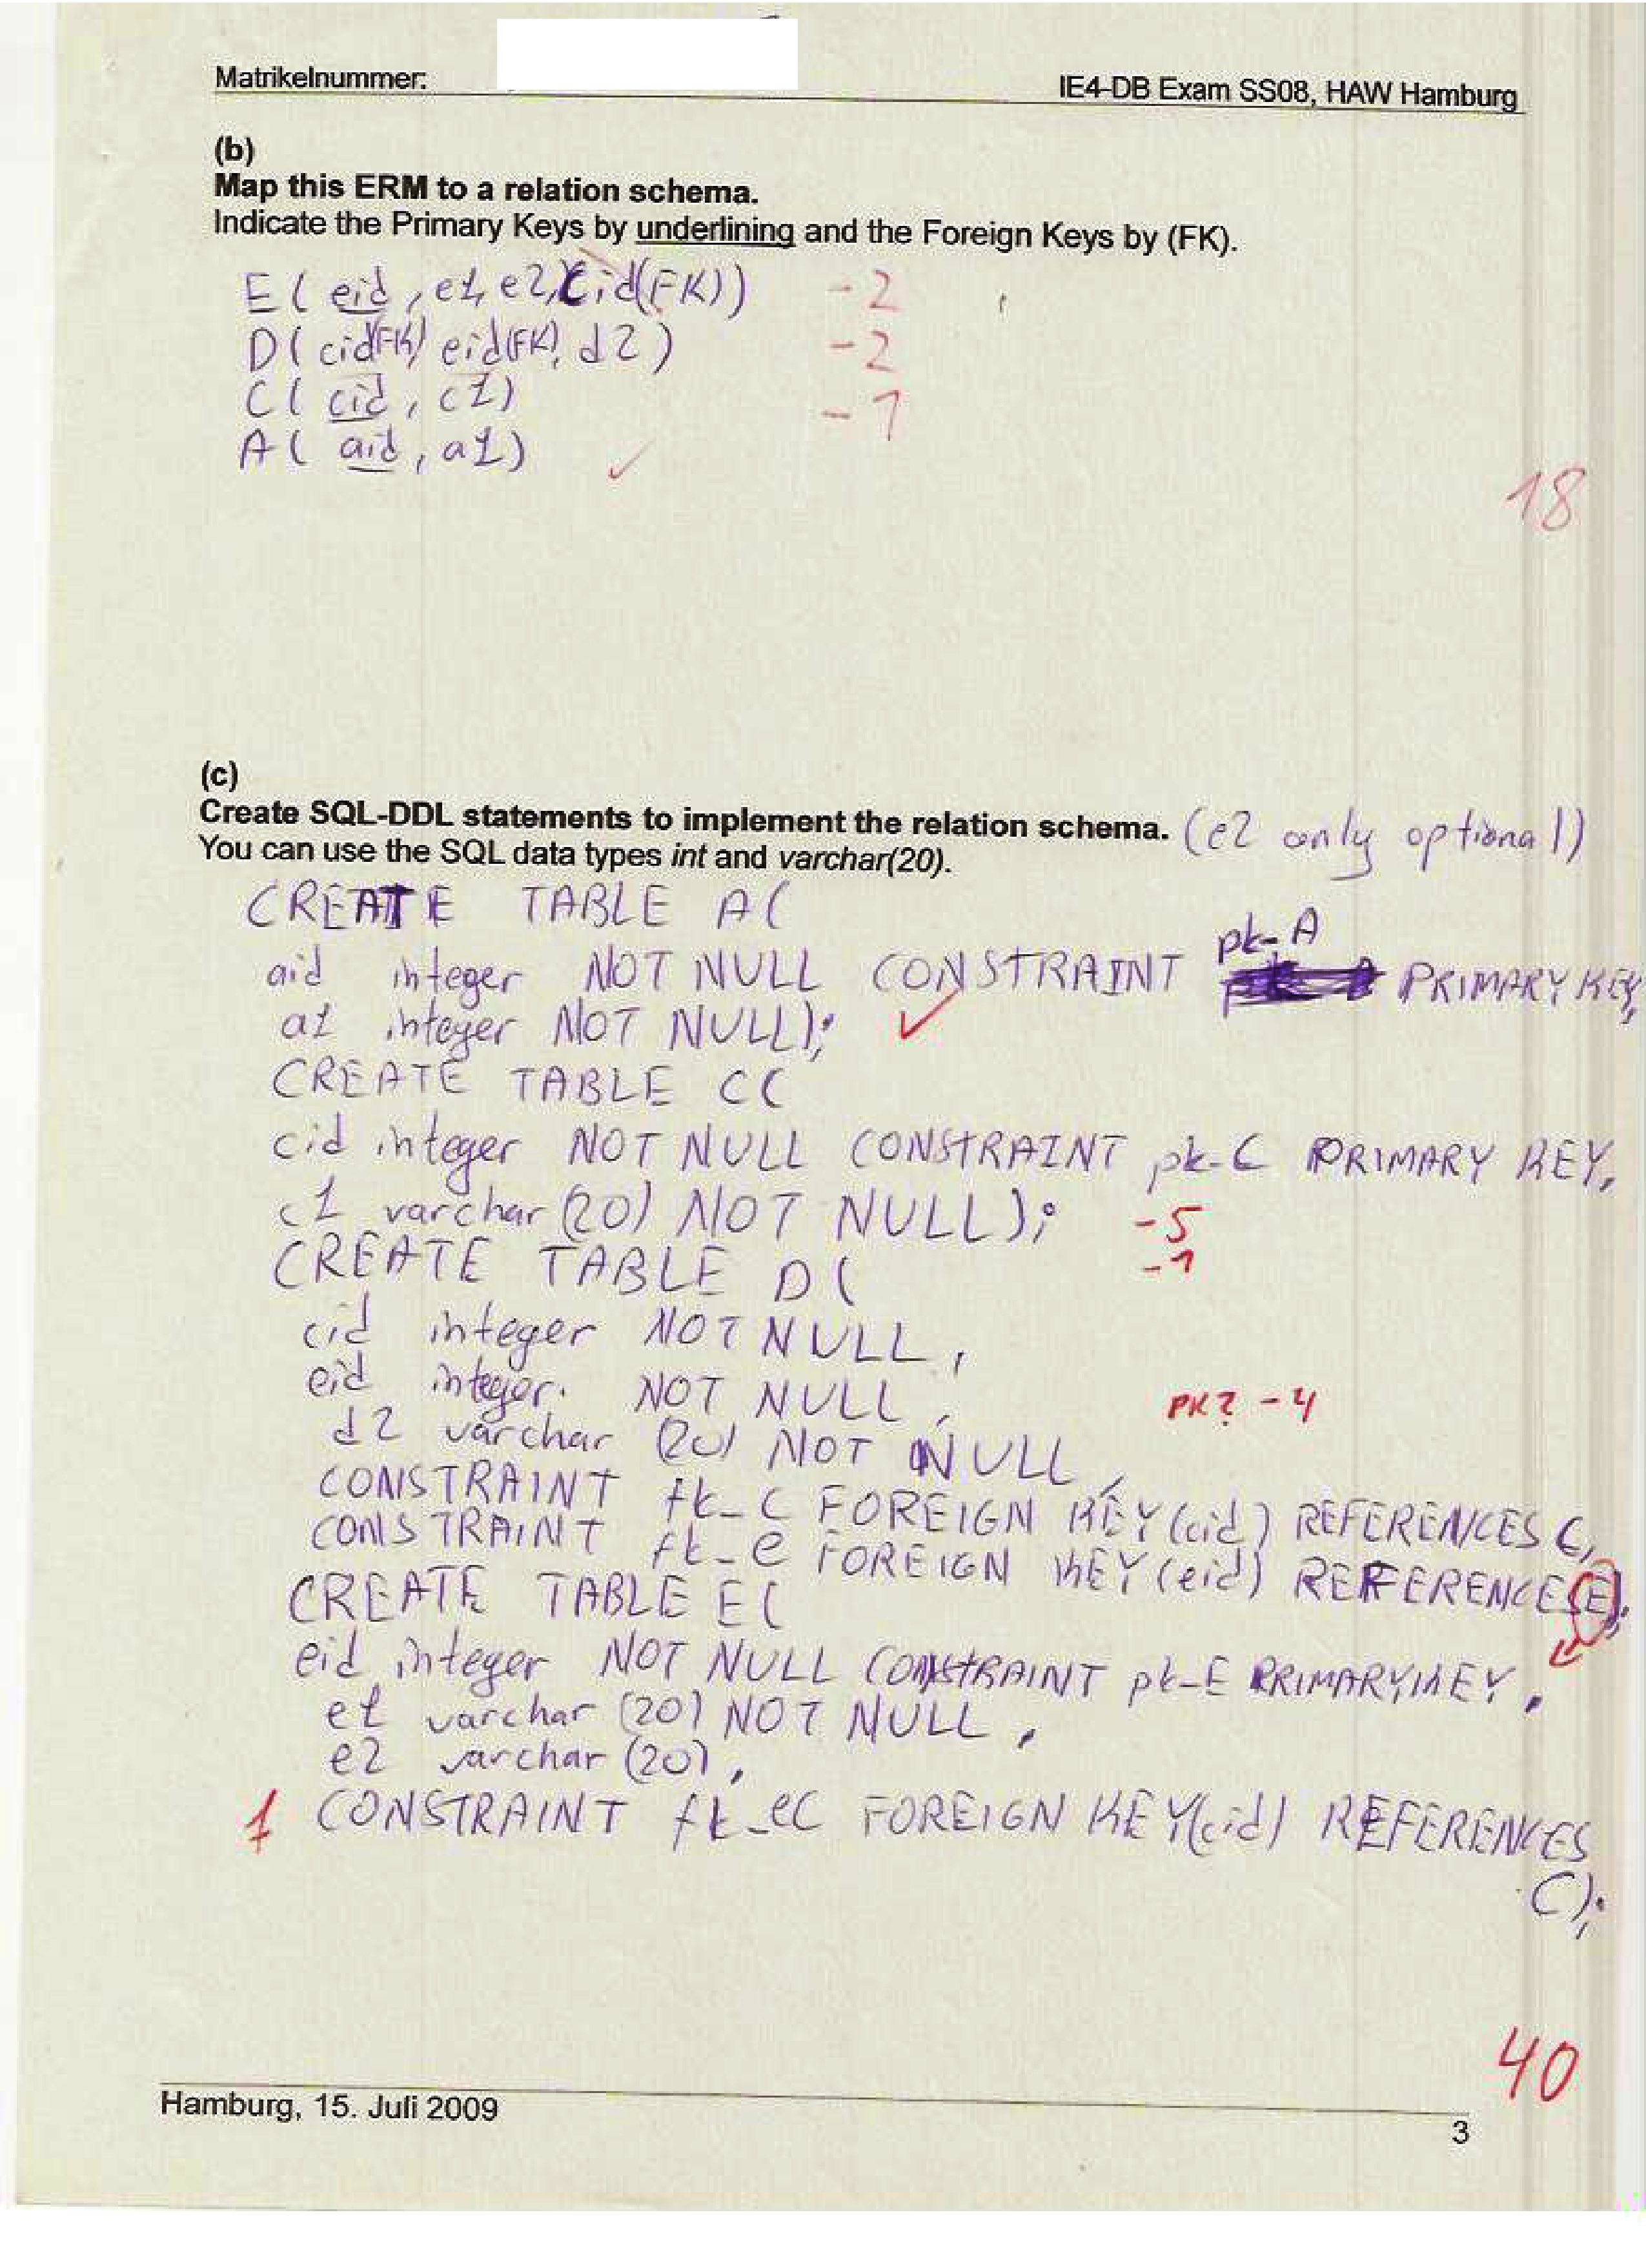 Matrikelnummer:
IE4-DB Exam SS08, HAW Hamburg
(b)
Map this ERM to a relation schema.
Indicate the Primary Keys by underlining and the Foreign Keys by (FK).
E( eid, e1, e2, cid(FK)) -2
D( cid(FK) eid(FK), d2 ) -2
C( cid, c1) -1
A( aid, a1) ✓
18
(c)
Create SQL-DDL statements to implement the relation schema. (e2 only optional)
You can use the SQL data types int and varchar(20).
CREATE TABLE A(
aid integer NOT NULL CONSTRAINT pk-A PRIMARY KEY,
a1 integer NOT NULL); ✓
CREATE TABLE C(
cid integer NOT NULL CONSTRAINT pk-C PRIMARY KEY,
c1 varchar(20) NOT NULL); -5
CREATE TABLE D( -1
cid integer NOT NULL,
eid integer NOT NULL, PK? -4
d2 varchar (20) NOT NULL,
CONSTRAINT fk_C FOREIGN KEY(cid) REFERENCES C,
CONSTRAINT fk_e FOREIGN KEY(eid) REFERENCES E);
CREATE TABLE E(
eid integer NOT NULL CONSTRAINT pk-E PRIMARY KEY,
e1 varchar (20) NOT NULL,
e2 varchar (20),
CONSTRAINT fk_eC FOREIGN KEY(cid) REFERENCES
C);
40
Hamburg, 15. Juli 2009
3